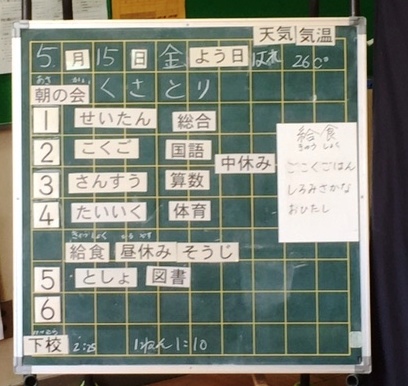 天気 気温
5 月 15 日 金 よう日 はれ 26℃
あさ かい
朝の会 くさとり
1 せいたん 総合
2 こくご 国語
中休み
3 さんすう 算数
4 たいいく 体育
きゅうしょく ひるやす
給食 昼休み そうじ
5 としょ 図書
6
下校 2:25 1ねん1:10
給食
きゅうしょく
ごこくごはん
しろみさかな
おひたし